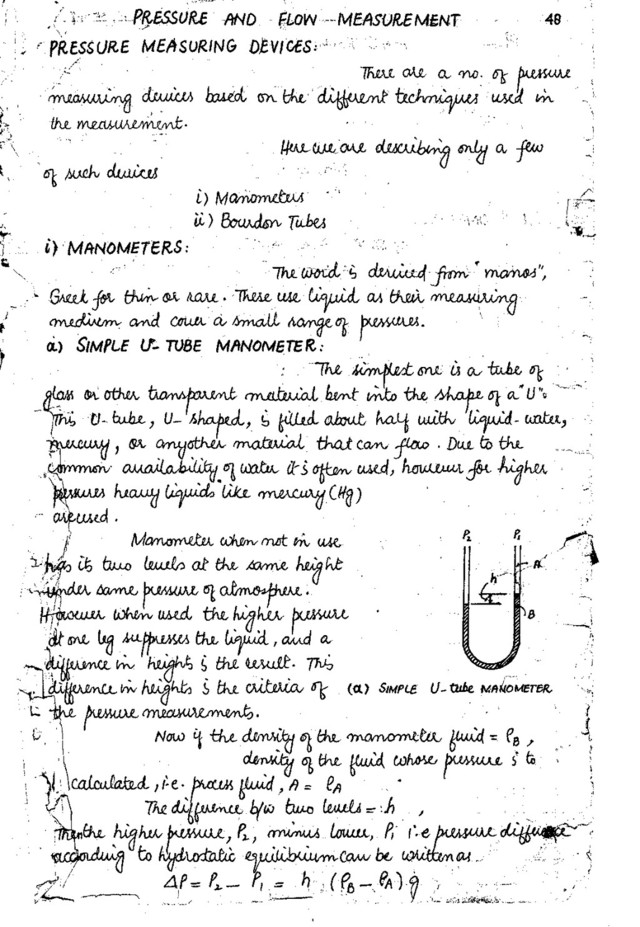 PRESSURE AND FLOW MEASUREMENT 48
PRESSURE MEASURING DEVICES:
There are a no. of pressure
measuring devices based on the different techniques used in
the measurement.
Here we are describing only a few
of such devices
i) Manometers
ii) Bourdon Tubes
i) MANOMETERS:
The word is derived from "manos",
Greek for thin or rare. These use liquid as their measuring
medium and cover a small range of pressures.
a) SIMPLE U-TUBE MANOMETER:
The simplest one is a tube of
glass or other transparent material bent into the shape of a "U".
This U-tube, U-shaped, is filled about half with liquid-water,
mercury, or anyother material that can flow. Due to the
common availability of water it is often used, however for higher
pressures heavy liquids like mercury (Hg)
are used.
Manometer when not in use
has its two levels at the same height
under same pressure of atmosphere.
However when used the higher pressure
at one leg suppresses the liquid, and a
difference in heights is the result. This
difference in heights is the criteria of
the pressure measurements.
P2 P1
A
h
B
(a) SIMPLE U-tube MANOMETER
Now if the density of the manometer fluid = ρB,
density of the fluid whose pressure is to
calculated, i.e. process fluid, A = ρA
The difference b/w two levels = h,
Then the higher pressure, P2, minus lower, P1 i.e pressure difference
according to hydrostatic equilibrium can be written as
ΔP = P2 - P1 = h (ρB - ρA) g